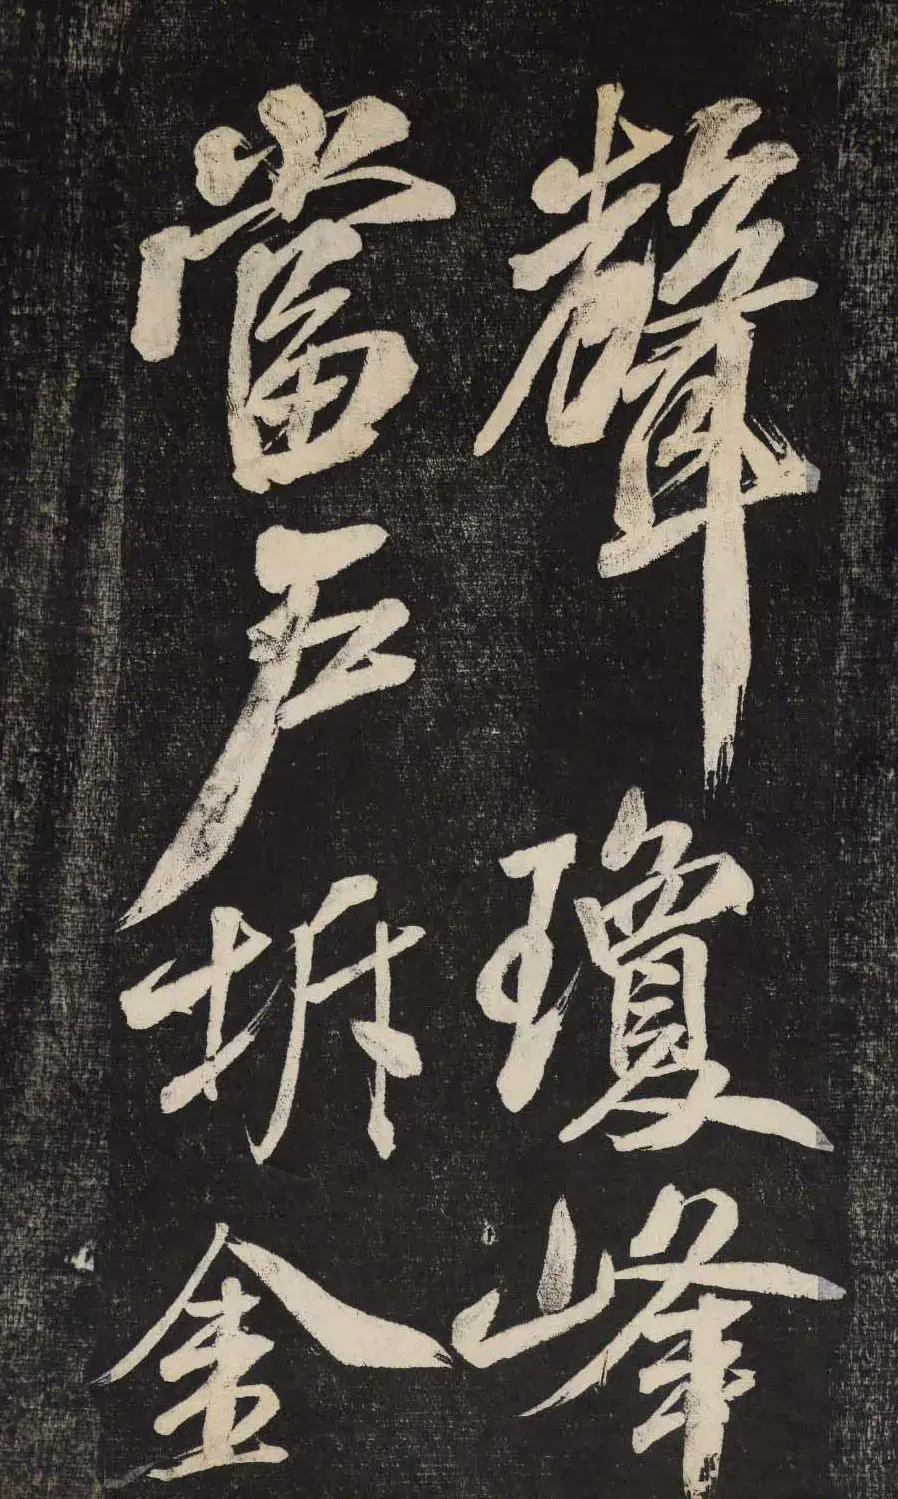 聲瓊峰
當戶坼金